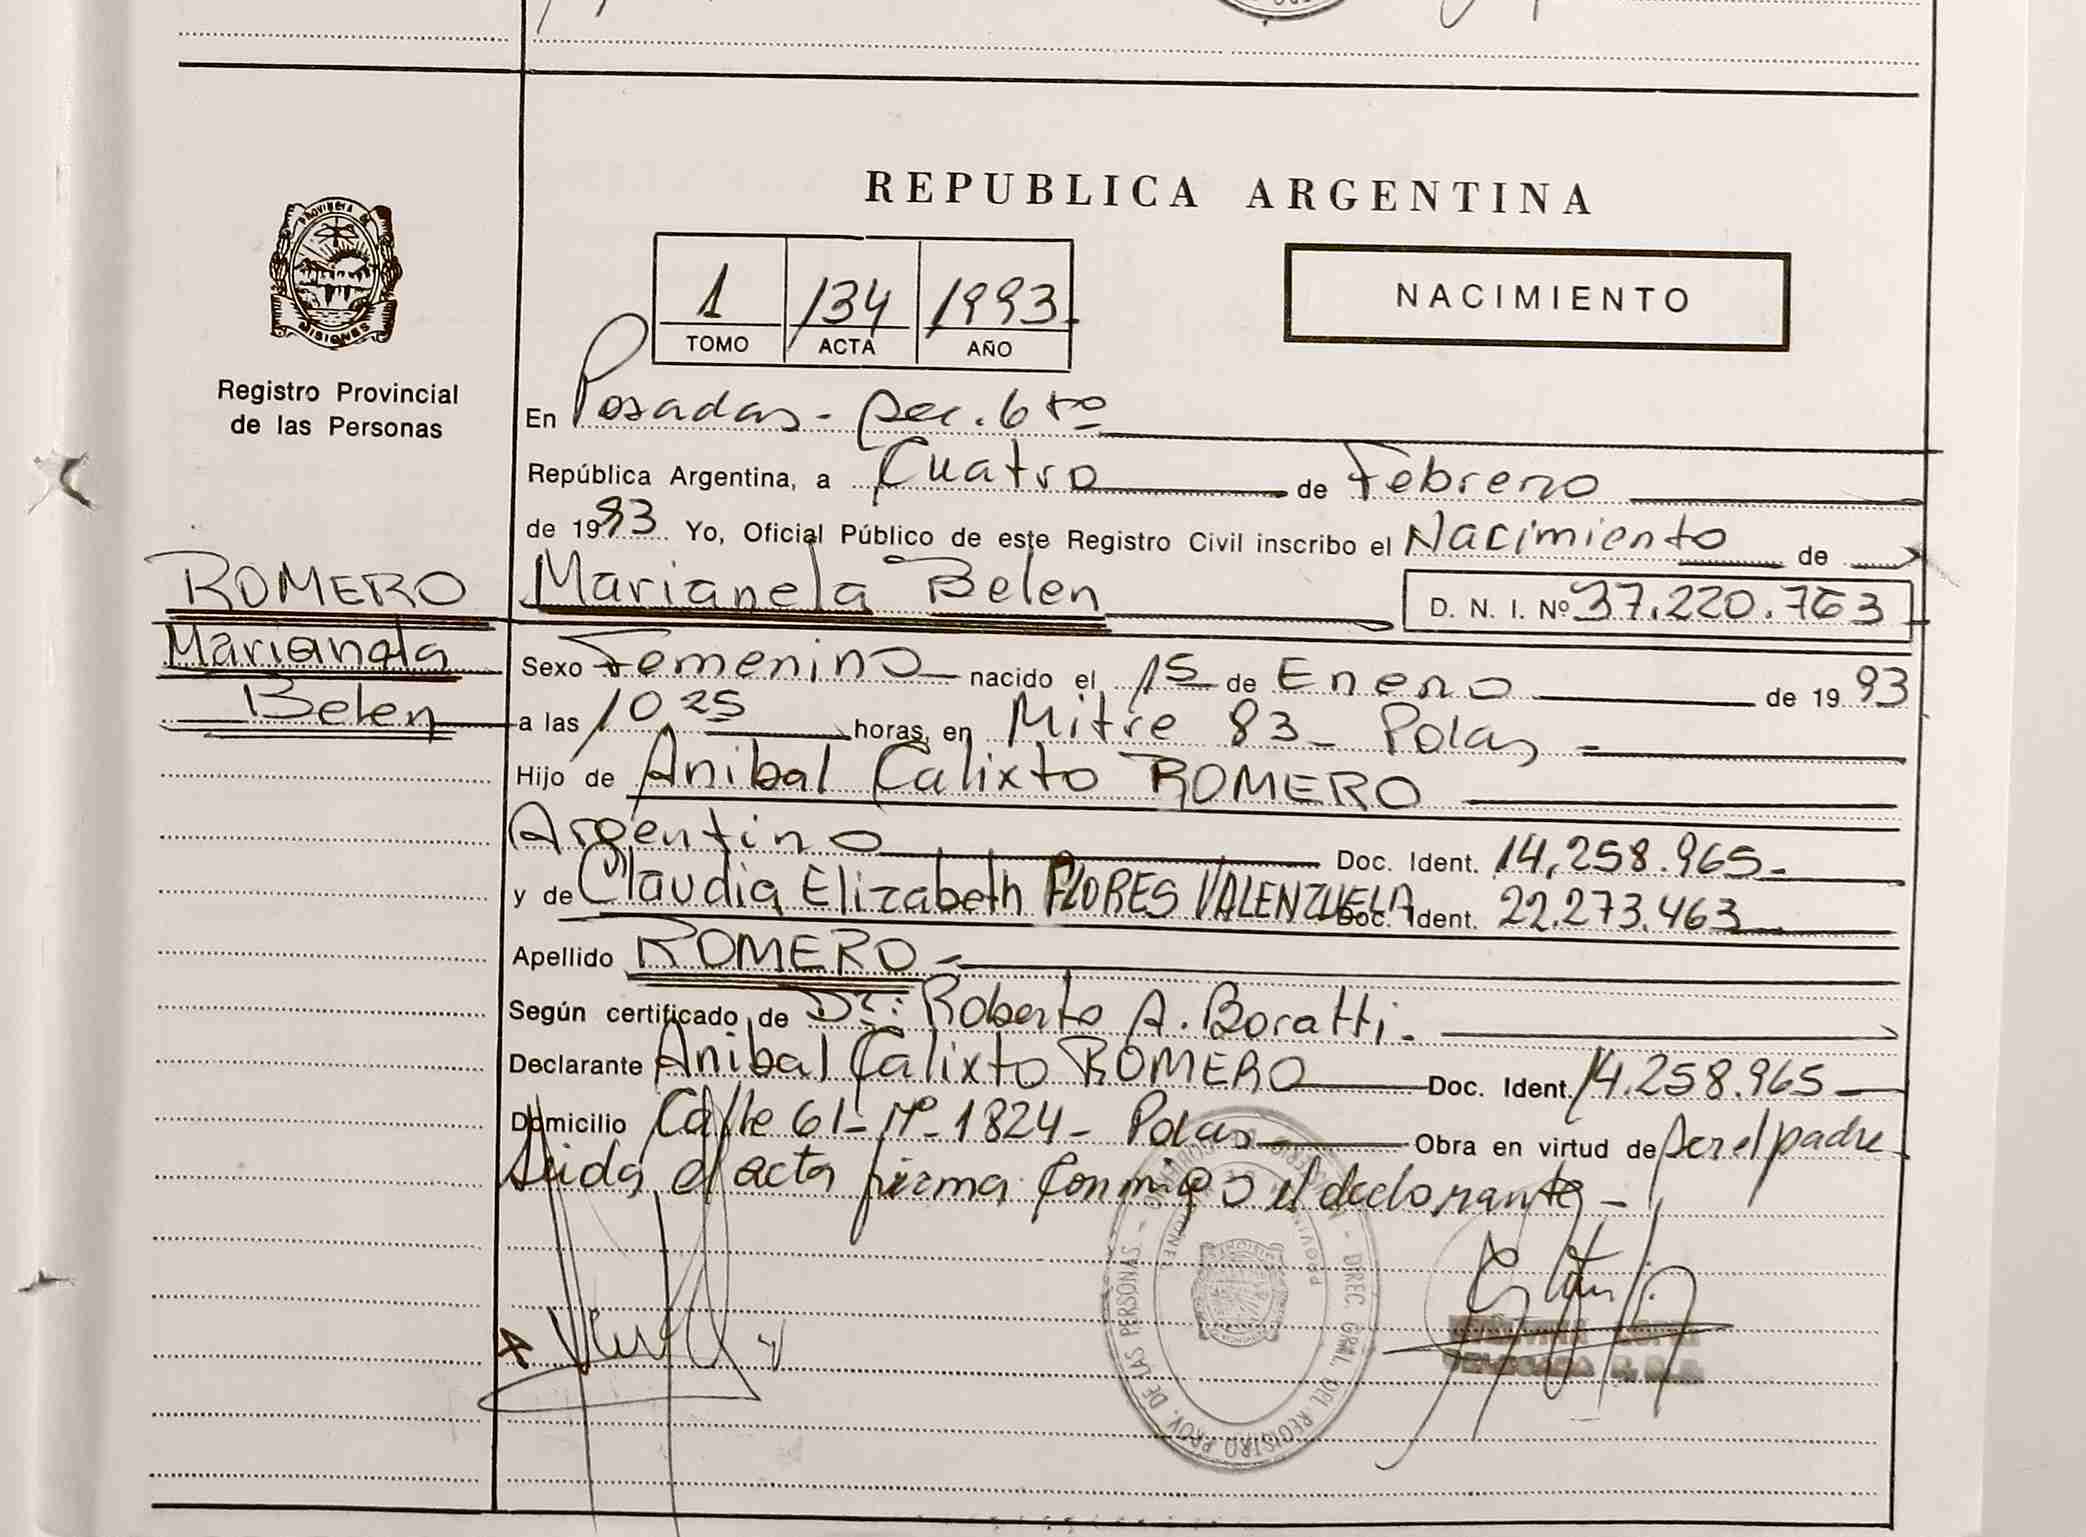 REPUBLICA ARGENTINA
Provincia de
MISIONES
Registro Provincial
de las Personas
1 134 1993
TOMO ACTA AÑO
NACIMIENTO
En Posadas - Sec. 6ta
República Argentina, a Cuatro de Febrero
de 1993 Yo, Oficial Público de este Registro Civil inscribo el Nacimiento de
ROMERO
Marianela
Belen
Marianela Belen D. N. I. Nº 37.220.763
Sexo Femenino nacido el 15 de Enero de 1993
a las 10 25 horas, en Mitre 83 - Pdas
Hijo de Anibal Calixto ROMERO
Argentino Doc. Ident. 14.258.965-
y de Claudia Elizabeth FLORES VALENZUELA Doc. Ident. 22.273.463
Apellido ROMERO -
Según certificado de Dr: Roberto A. Boratti -
Declarante Anibal Calixto ROMERO Doc. Ident. 14.258.965
Domicilio Calle 61 - Nº - 1824 - Pdas Obra en virtud de Ser el padre
Leida el acta firma conmigo el declarante -
DIREC. GRAL. DEL REGISTRO PROV. DE LAS PERSONAS -